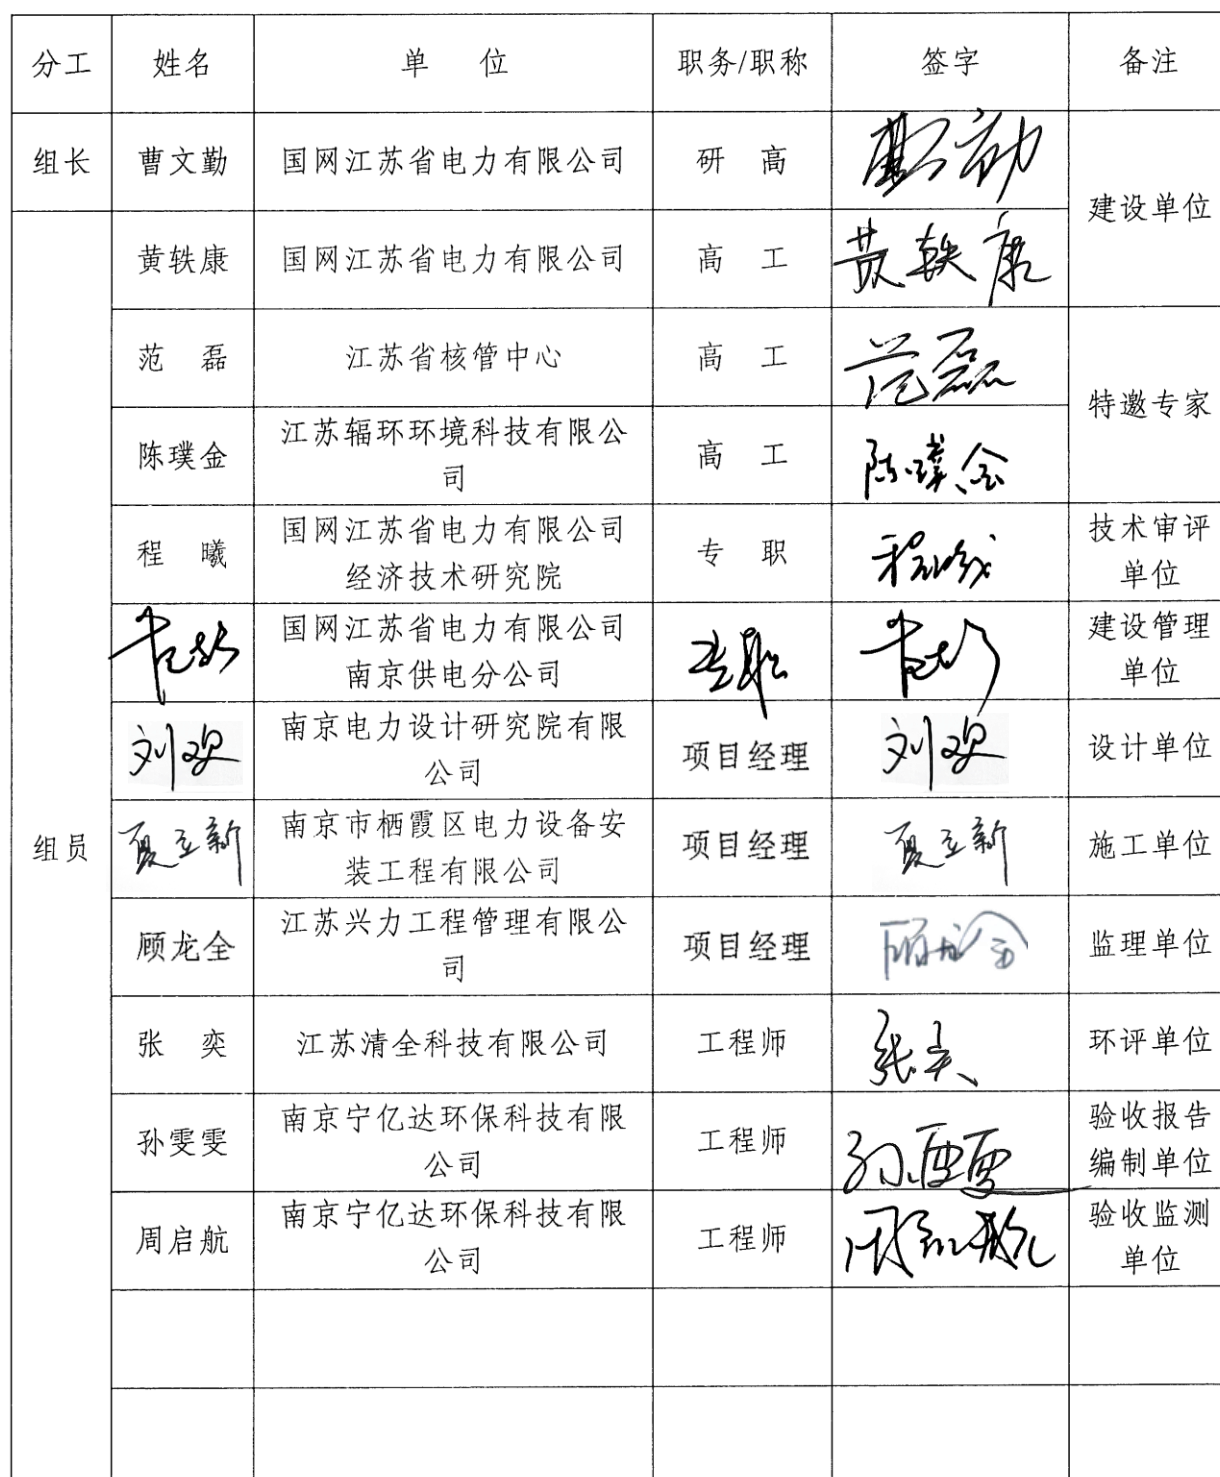 分工 姓名 单 位 职务/职称 签字 备注
组长 曹文勤 国网江苏省电力有限公司 研 高
建设单位
黄轶康 国网江苏省电力有限公司 高 工 黄轶康
范 磊 江苏省核管中心 高 工 范磊
特邀专家
陈璞金 江苏辐环环境科技有限公
司 高 工 陈璞金
程 曦 国网江苏省电力有限公司
经济技术研究院 专 职 程曦 技术审评
单位
国网江苏省电力有限公司
南京供电分公司 专职 建设管理
单位
刘欢 南京电力设计研究院有限
公司 项目经理 刘欢 设计单位
组员 夏立新 南京市栖霞区电力设备安
装工程有限公司 项目经理 夏立新 施工单位
顾龙全 江苏兴力工程管理有限公
司 项目经理 顾龙全 监理单位
张 奕 江苏清全科技有限公司 工程师 张奕 环评单位
孙雯雯 南京宁亿达环保科技有限
公司 工程师 孙雯雯 验收报告
编制单位
周启航 南京宁亿达环保科技有限
公司 工程师 周启航 验收监测
单位